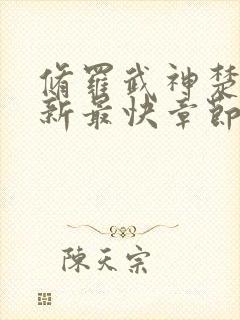 脩羅武神楚
新最快章節
陳天宗